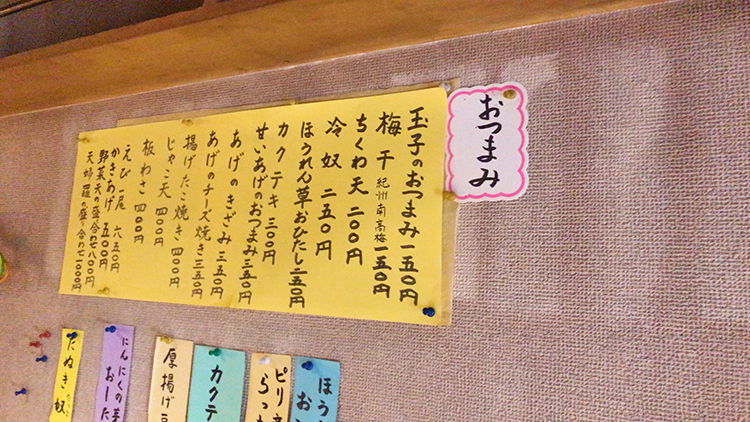 おつまみ
玉子のおつまみ 一五〇円
梅干 紀州南高梅 一五〇円
ちくわ天 二〇〇円
冷奴 二五〇円
ほうれん草おひたし 二五〇円
カクテキ 三〇〇円
甘いあげのおつまみ 三五〇円
あげのきざみ 三五〇円
あげのチーズ焼き 三五〇円
揚げたこ焼き 四〇〇円
じゃこ天 四〇〇円
板わさ 四〇〇円
えび一尾 六五〇円
かきあげ 五〇〇円
野菜天の盛合わせ 八〇〇円
天婦羅の盛り合わせ 一〇〇〇円
ほう
お
ピリ
らっ
カクテ
厚揚げ
にんにくの芽
おーた
たぬき奴